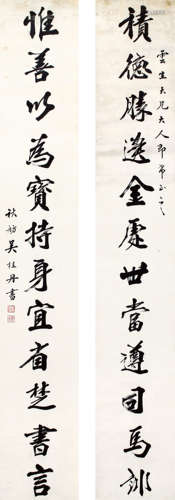 積德勝遺金處世當遵司馬訓
雲生大兄大人即希正之
惟善以為寶持身宜省楚書言
秋舫吳桂丹書